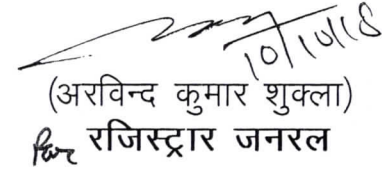 10/10/18
(अरविन्द कुमार शुक्ला)
रजिस्ट्रार जनरल